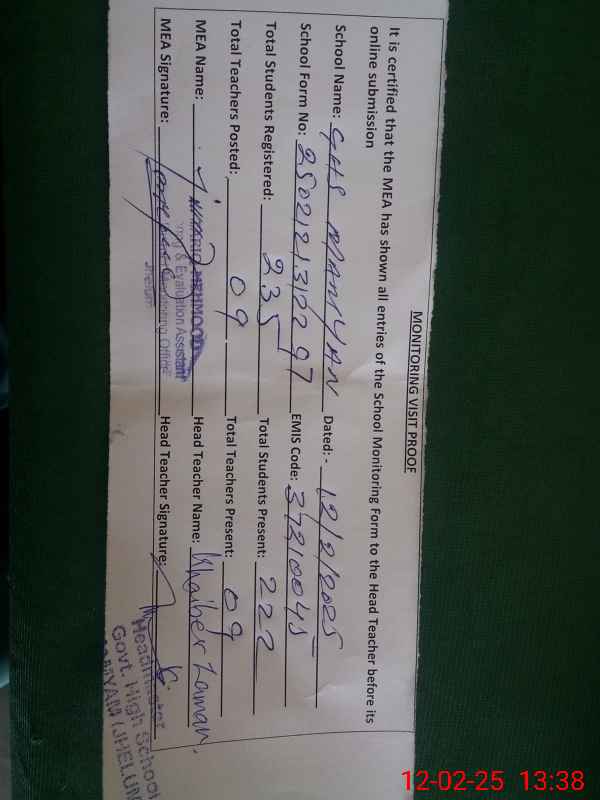 MONITORING VISIT PROOF
It is certified that the MEA has shown all entries of the School Monitoring Form to the Head Teacher before its
online submission
School Name: GHS Dated: - 12/2/2025
School Form No: EMIS Code: 37210045
Total Students Registered: 235 Total Students Present: 222
Total Teachers Posted: 09 Total Teachers Present: 09
MEA Name: MEHMOOD Head Teacher Name: Khaiber Zaman,
& Evaluation Assistant
MEA Signature: Head Teacher Signature:
Jhelum
Headmaster
Govt. High School
(JHELUM
12-02-25 13:38